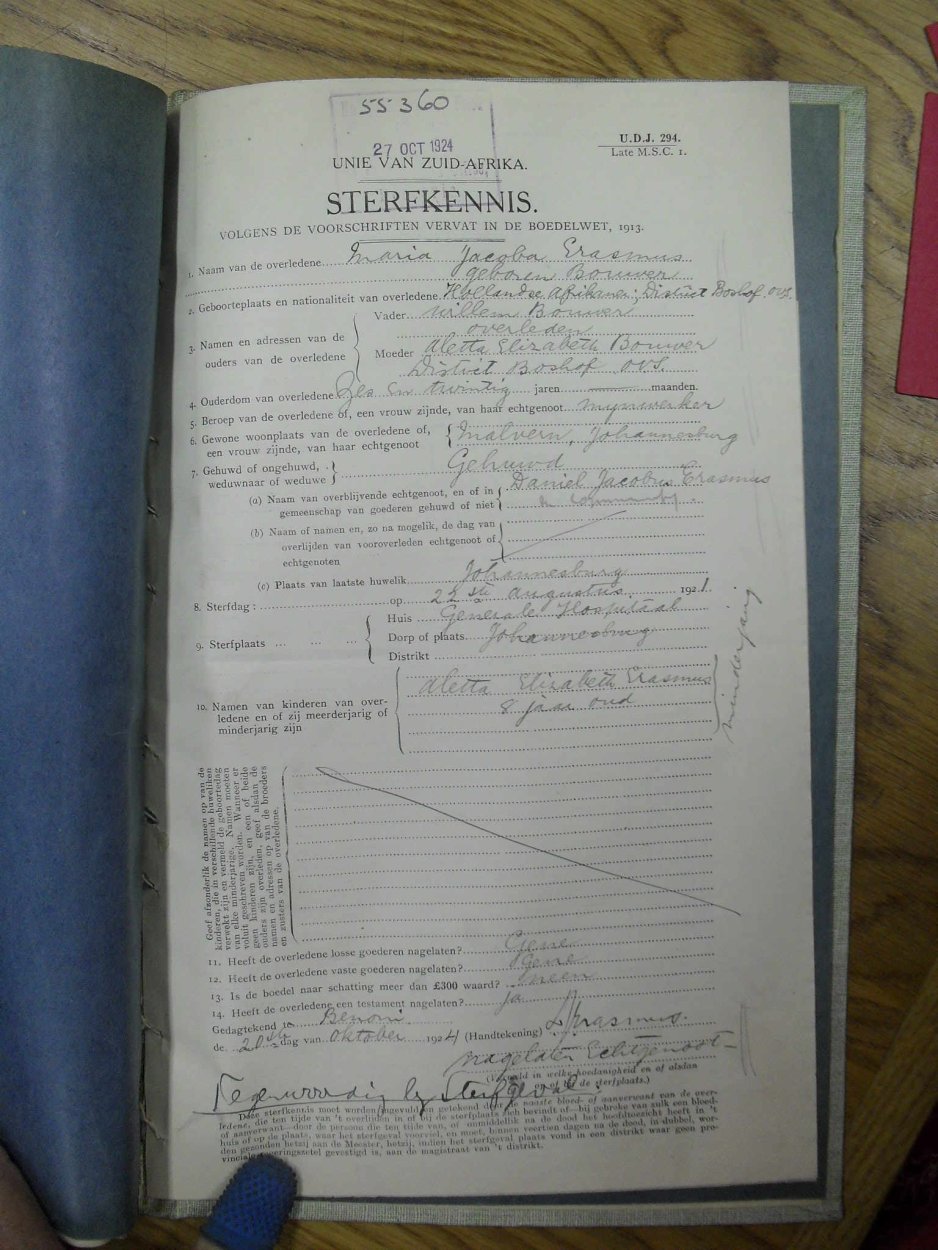 55360
27 OCT 1924
U.D.J. 294.
Late M.S.C. 1.
UNIE VAN ZUID-AFRIKA.
STERFKENNIS.
VOLGENS DE VOORSCHRIFTEN VERVAT IN DE BOEDELWET, 1913.
1. Naam van de overledene Maria Jacoba Erasmus
geboren Bouwer
2. Geboorteplaats en nationaliteit van overledene Hollandse Afrikaner; District Boshof. ovs.
3. Namen en adressen van de ouders van de overledene
Vader Willem Bouwer
overleden
Moeder Aletta Elizabeth Bouwer
District Boshof ovs.
4. Ouderdom van overledene Zes en twintig jaren — maanden.
5. Beroep van de overledene of, een vrouw zijnde, van haar echtgenoot mynwerker
6. Gewone woonplaats van de overledene of, een vrouw zijnde, van haar echtgenoot
Malvern, Johannesburg
7. Gehuwd of ongehuwd, weduwnaar of weduwe
Gehuwd
(a) Naam van overblijvende echtgenoot, en of in gemeenschap van goederen gehuwd of niet
Daniel Jacobus Erasmus
(b) Naam of namen en, zo na mogelik, de dag van overlijden van vooroverleden echtgenoot of echtgenoten
(c) Plaats van laatste huwelik Johannesburg
8. Sterfdag: op 22ste Augustus 1921
9. Sterfplaats ... ... ...
Huis Generale Hospitaal
Dorp of plaats Johannesburg
Distrikt
10. Namen van kinderen van overledene en of zij meerderjarig of minderjarig zijn
Aletta Elizabeth Erasmus
8 jaar oud
minderjarig
Geef afzonderlik de namen op van de
kinderen, die in verschillende huweliken
verwekt zijn en vermeld de geboortedag
van elke minderjarige. Namen moeten
voluit geschreven worden. Wanneer er
geen kinderen zijn, en een of beide
ouders zijn overleden, geef alsdan de
namen en adressen op van de broeders
en zusters van de overledene.
11. Heeft de overledene losse goederen nagelaten? Gene
12. Heeft de overledene vaste goederen nagelaten? Gene
13. Is de boedel naar schatting meer dan £300 waard? neen
14. Heeft de overledene een testament nagelaten? ja
Gedagtekend te Benoni
de 20ste dag van Oktober 1924 (Handtekening) Erasmus.
nagelaten Echtgenoot
(Vermeld in welke hoedanigheid en of alsdan
en of bij de sterfplaats.)
Tegenwoordig by Sterfgeval
Deze sterfkennis moet worden ingevuld en getekend door de naaste bloed- of aanverwant van de overledene, die ten tijde van 't overlijden in of bij de sterfplaats zich bevindt of bij gebreke van zulk een bloed-
of aanverwant door de persoon die ten tijde van, of onmiddellik na de dood het hoofdtoezicht heeft in 't
huis of op de plaats, waar het sterfgeval voorviel, en moet, binnen veertien dagen na de dood, in dubbel, worden gezonden hetzij aan de Meester, hetzij, indien het sterfgeval plaats vond in een distrikt waar geen provinciale regeringszetel gevestigd is, aan de magistraat van 't distrikt.